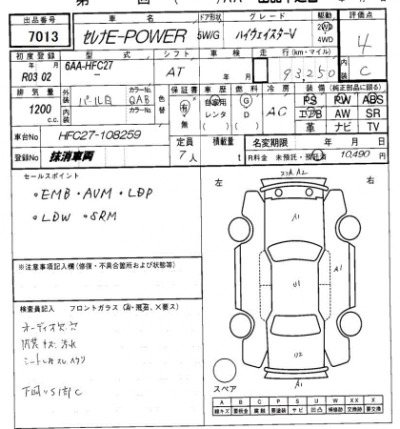 出品番号 車名 ドア形状 グレード 駆動 評価点
7013 セレナE-POWER 5W/G ハイウェイスターV 2WD 4WD 4
初度登録 型式 シフト 車検 走行(km・マイル) 内装
R03 02 6AA-HFC27 AT 年 月 93,250 C
排気量 外装 カラーNo. 色替 保証書 車歴 燃料 冷房 装備(純正部品に限る)
1200 c.c. パール白 QAB 有 無 自家用 レンタ G D AC PS PW ABS
エアB AW SR
革 ナビ TV
車台No HFC27-108259
定員 積載量 名変期限 年 月 日
登録No 抹消車両 7人 t R料金 未預託・預託済 10,490 円
セールスポイント
・EMB・AVM・LDP
・LDW・SRM
左 右
※注意事項記入欄(修復・不具合箇所および状態等)
検査員記入 フロントガラス
オーディオ欠
内装キズ 汚れ
下回りS1腐C
A1
A1
U1
U2
A1
スペア
A B C P S U W X XX